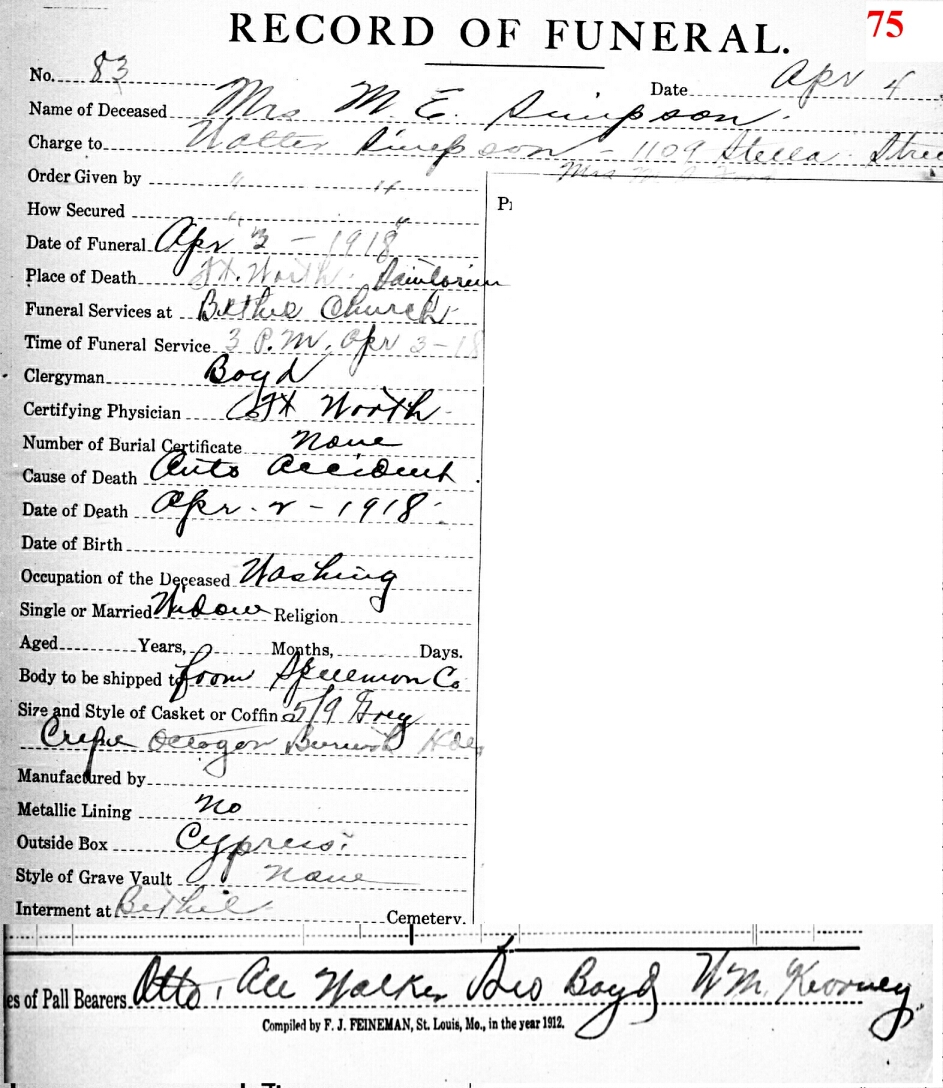 RECORD OF FUNERAL. 75
No. 83 Date Apr 4
Name of Deceased Mrs M. E. Simpson.
Charge to Walter Simpson - 1109 Stella Stree
Mrs
Order Given by " "
How Secured " "
Date of Funeral Apr 3 - 1918
Place of Death Ft. Worth Sanitorium
Funeral Services at Bethel Church
Time of Funeral Service 3 P.M. Apr 3-18
Clergyman Boyd
Certifying Physician Ft Worth
Number of Burial Certificate None
Cause of Death Auto Accident.
Date of Death Apr. 2 - 1918
Date of Birth
Occupation of the Deceased Washing
Single or Married Widow Religion
Aged Years, Months, Days.
Body to be shipped to from Co
Size and Style of Casket or Coffin 5/9 Grey
Crepe Octogon Hdls
Manufactured by
Metallic Lining No
Outside Box Cypress
Style of Grave Vault None
Interment at Bethel Cemetery.
es of Pall Bearers Otto, Walker Geo Boyd Wm. Kearney.
Compiled by F. J. FEINEMAN, St. Louis, Mo., in the year 1912.